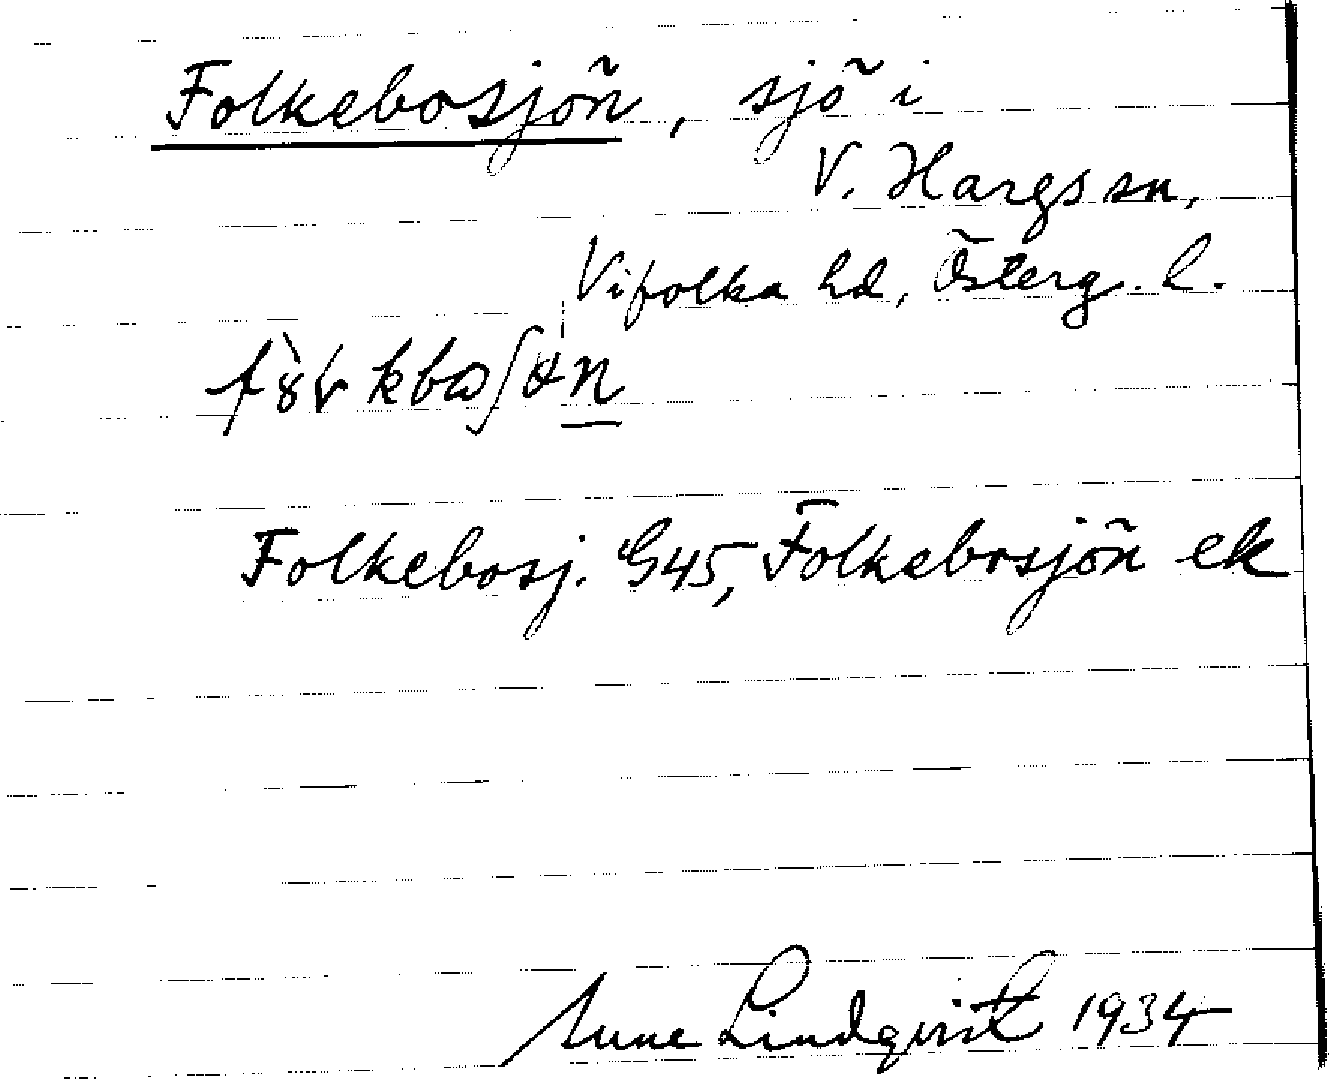 Folkebosjön, sjö i
V. Hargs sn,
Vifolka hd, Österg. l.
Folkebosj. G45, Folkebosjön ek
Sune Lindqvist 1934